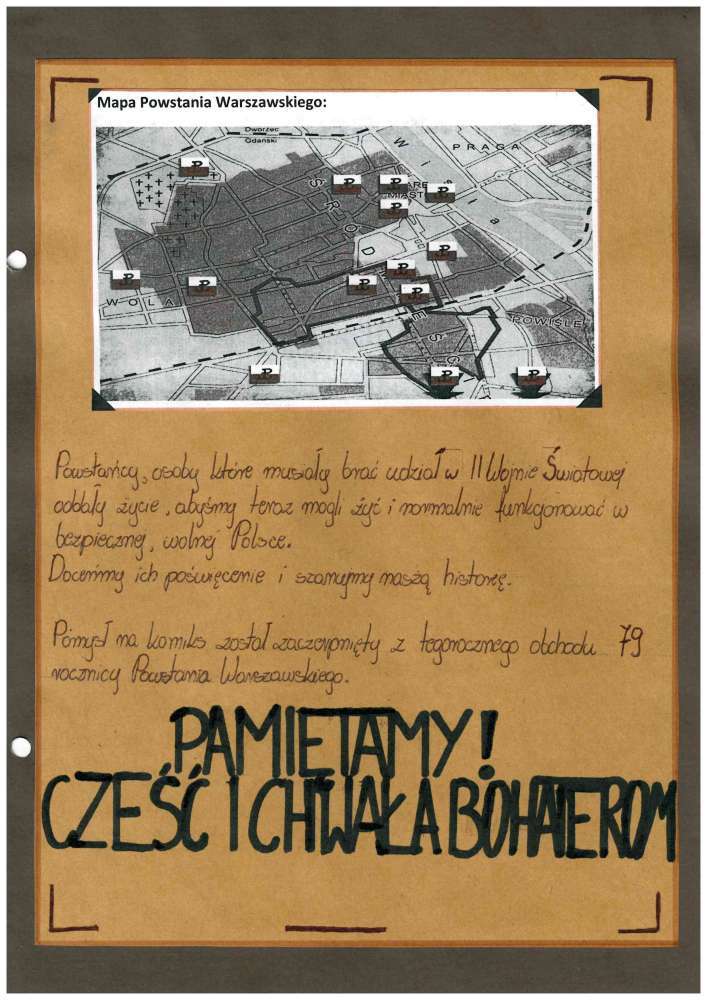 Mapa Powstania Warszawskiego:
Dworzec
Gdański
PRAGA
Wi
ła
STARE
MIASTO
ŚRÓD
WOLA
POWIŚLE
Powstańcy, osoby które musiały brać udział w II Wojnie Światowej
oddały życie, abyśmy teraz mogli żyć i normalnie funkcjonować w
bezpiecznej, wolnej Polsce.
Doceńmy ich poświęcenie i szanujmy naszą historię.
Pomysł na komiks został zaczerpnięty z tegorocznego obchodu 79
rocznicy Powstania Warszawskiego.
PAMIĘTAMY!
CZEŚĆ I CHWAŁA BOHATEROM